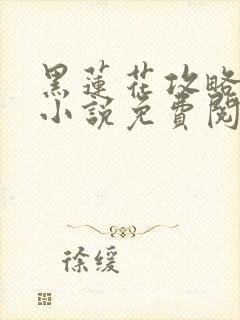 黑莲花攻略
小說免費閱
徐缓